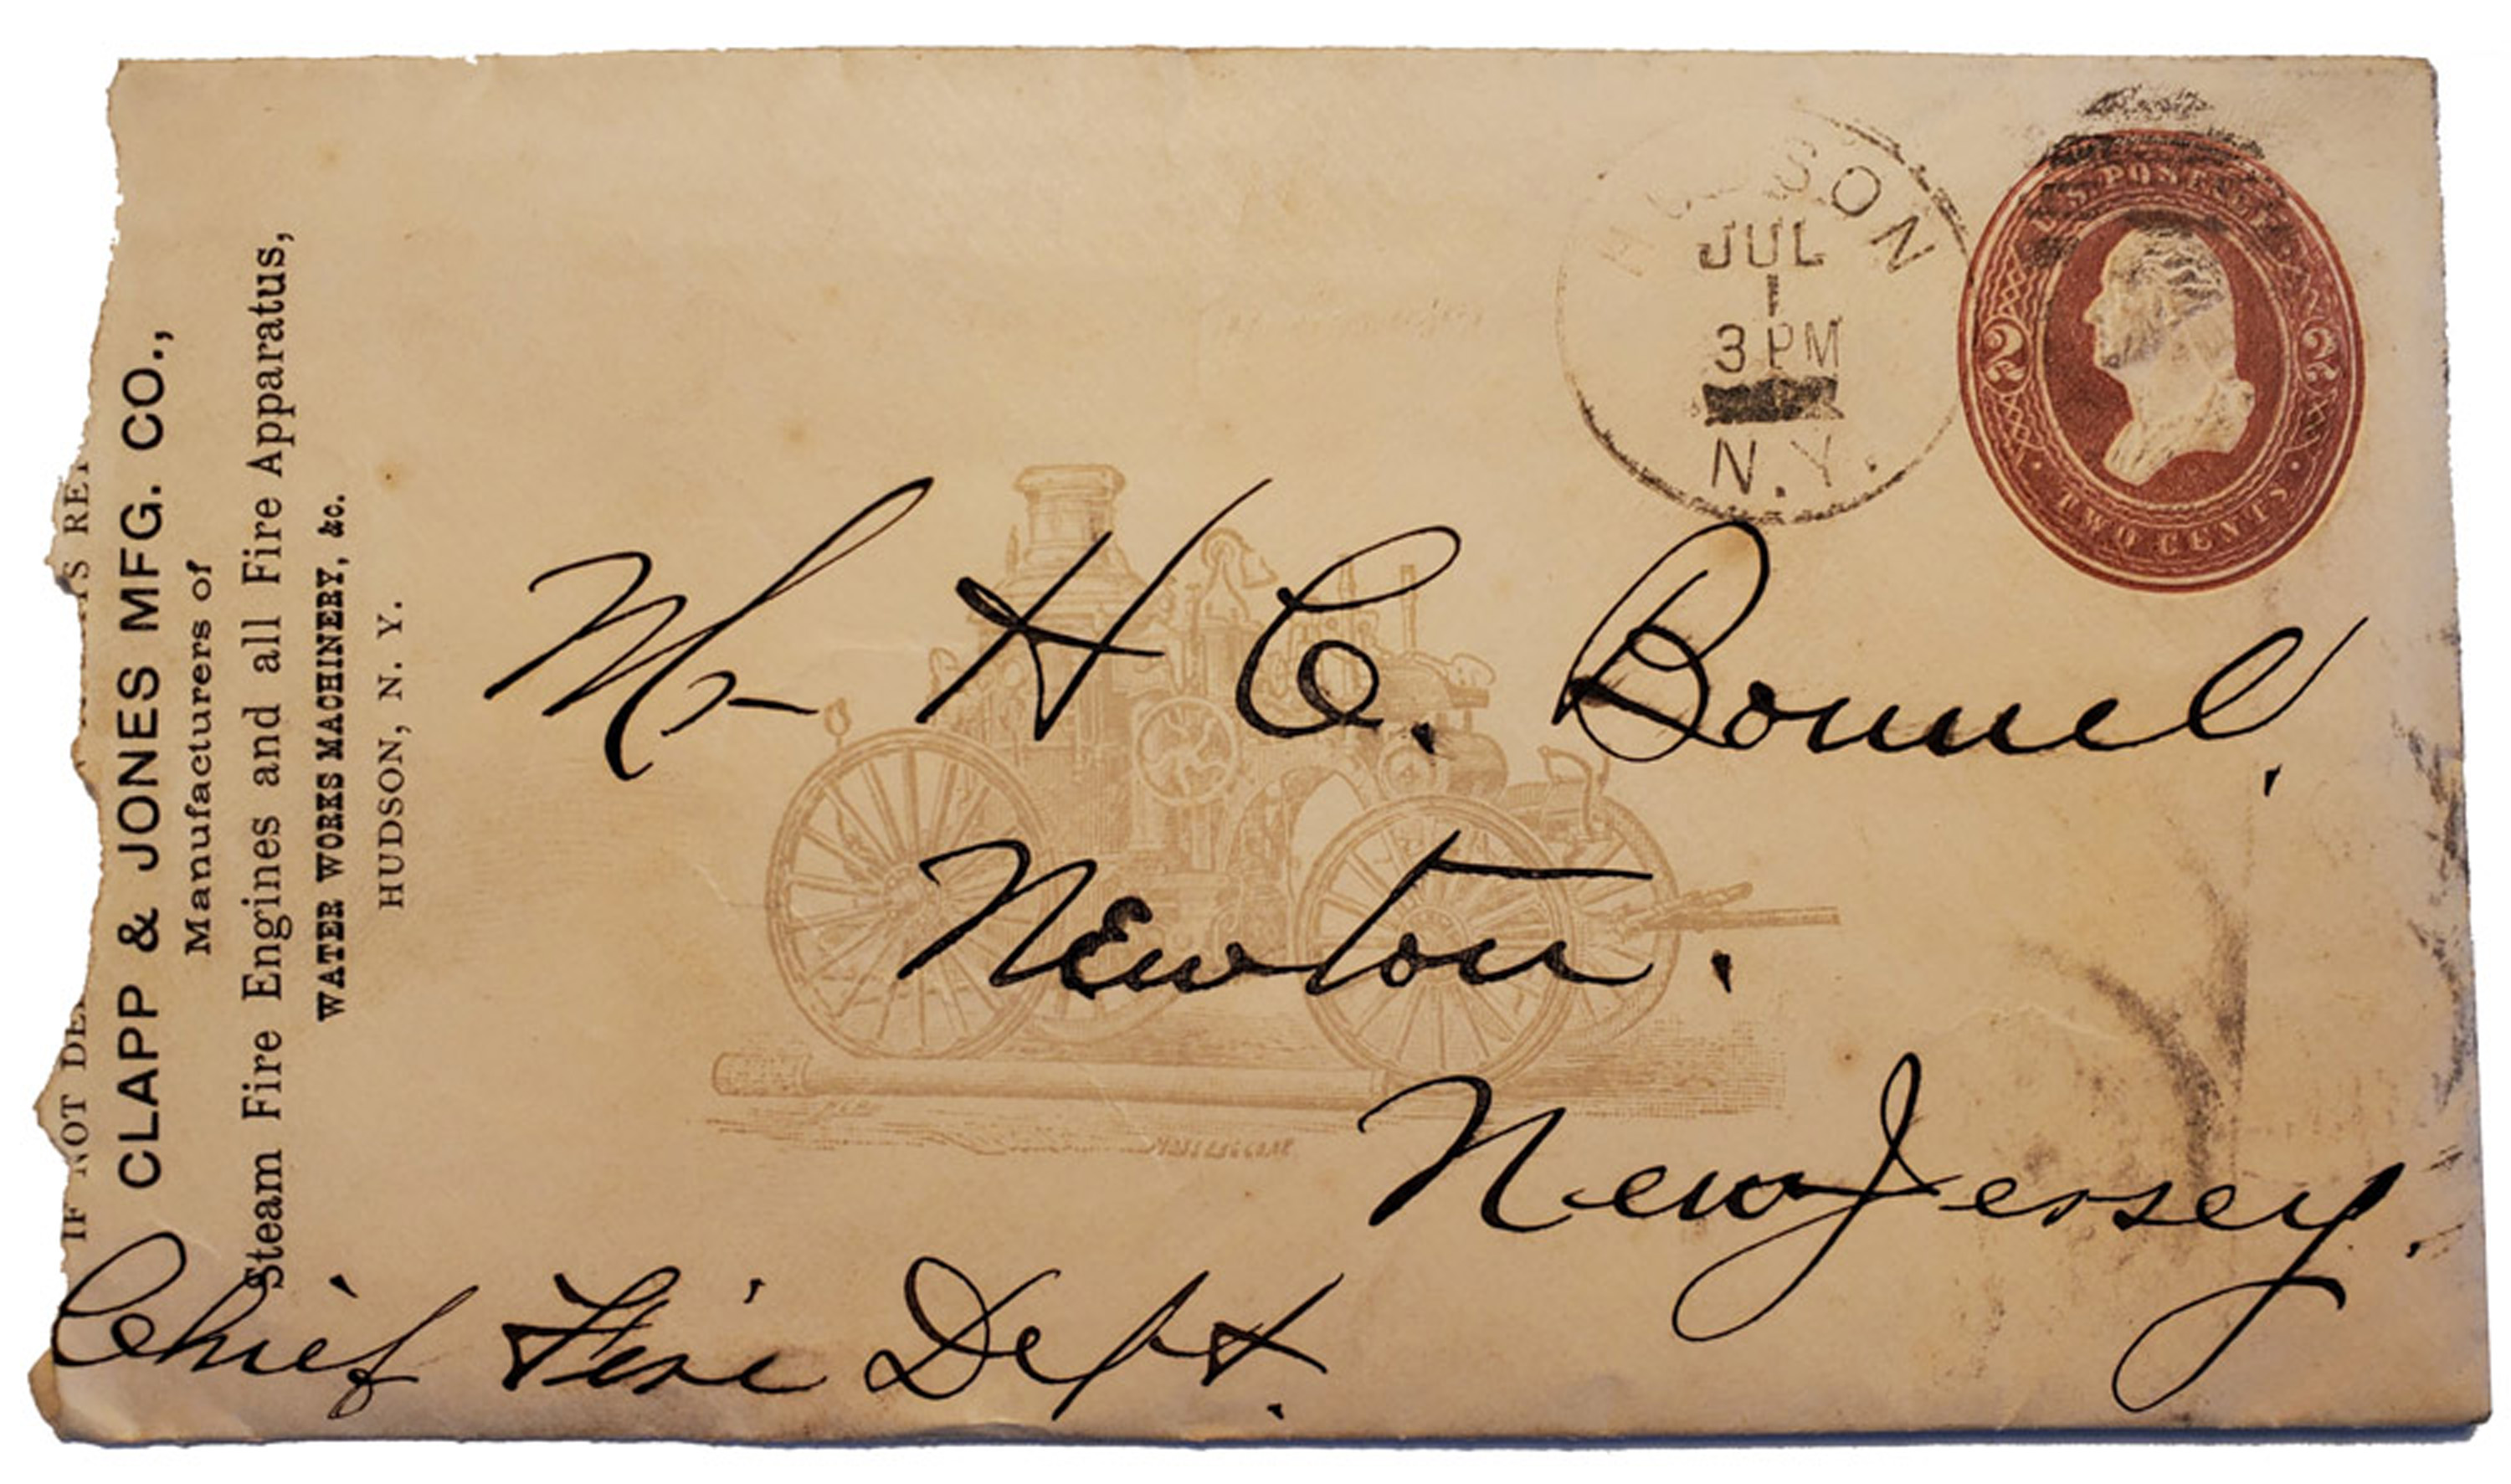 IF NOT DE
S RE
CLAPP & JONES MFG. CO.,
Manufacturers of
Steam Fire Engines and all Fire Apparatus,
WATER WORKS MACHINERY, &c.
HUDSON, N. Y.
HUDSON
JUL
1
3 PM
N.Y.
U.S. POSTAGE
2 2
TWO CENTS
Mr H C. Bonnel,
Newton.
New Jersey.
Chief Fire Dept.